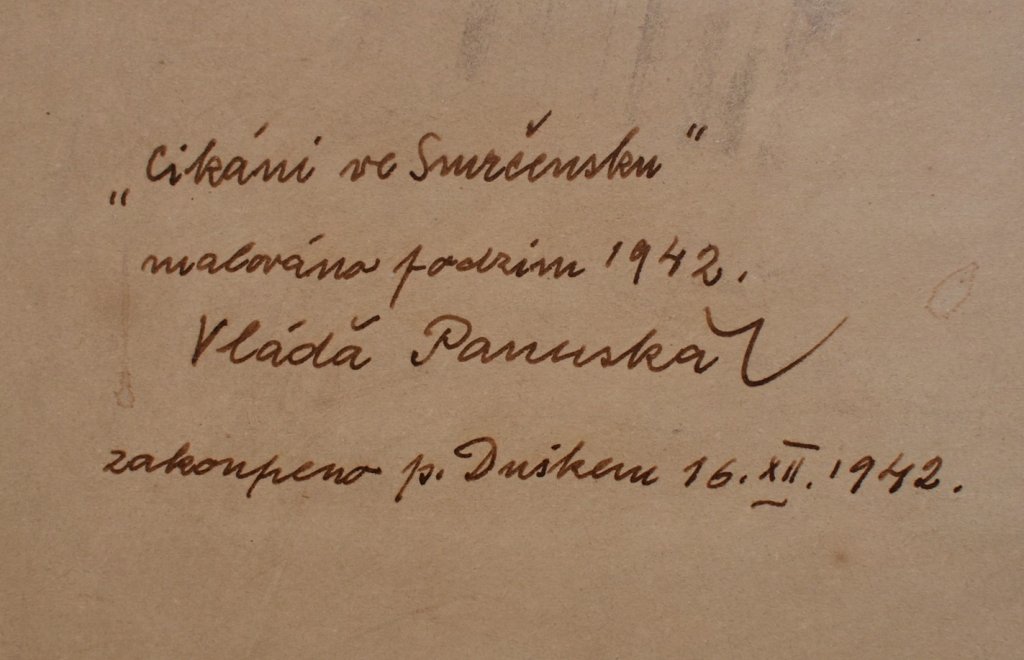 „Cikáni ve Smrčensku"
malováno podzim 1942.
Vláďa Panuška
zakoupeno p. Duškem 16. XII. 1942.